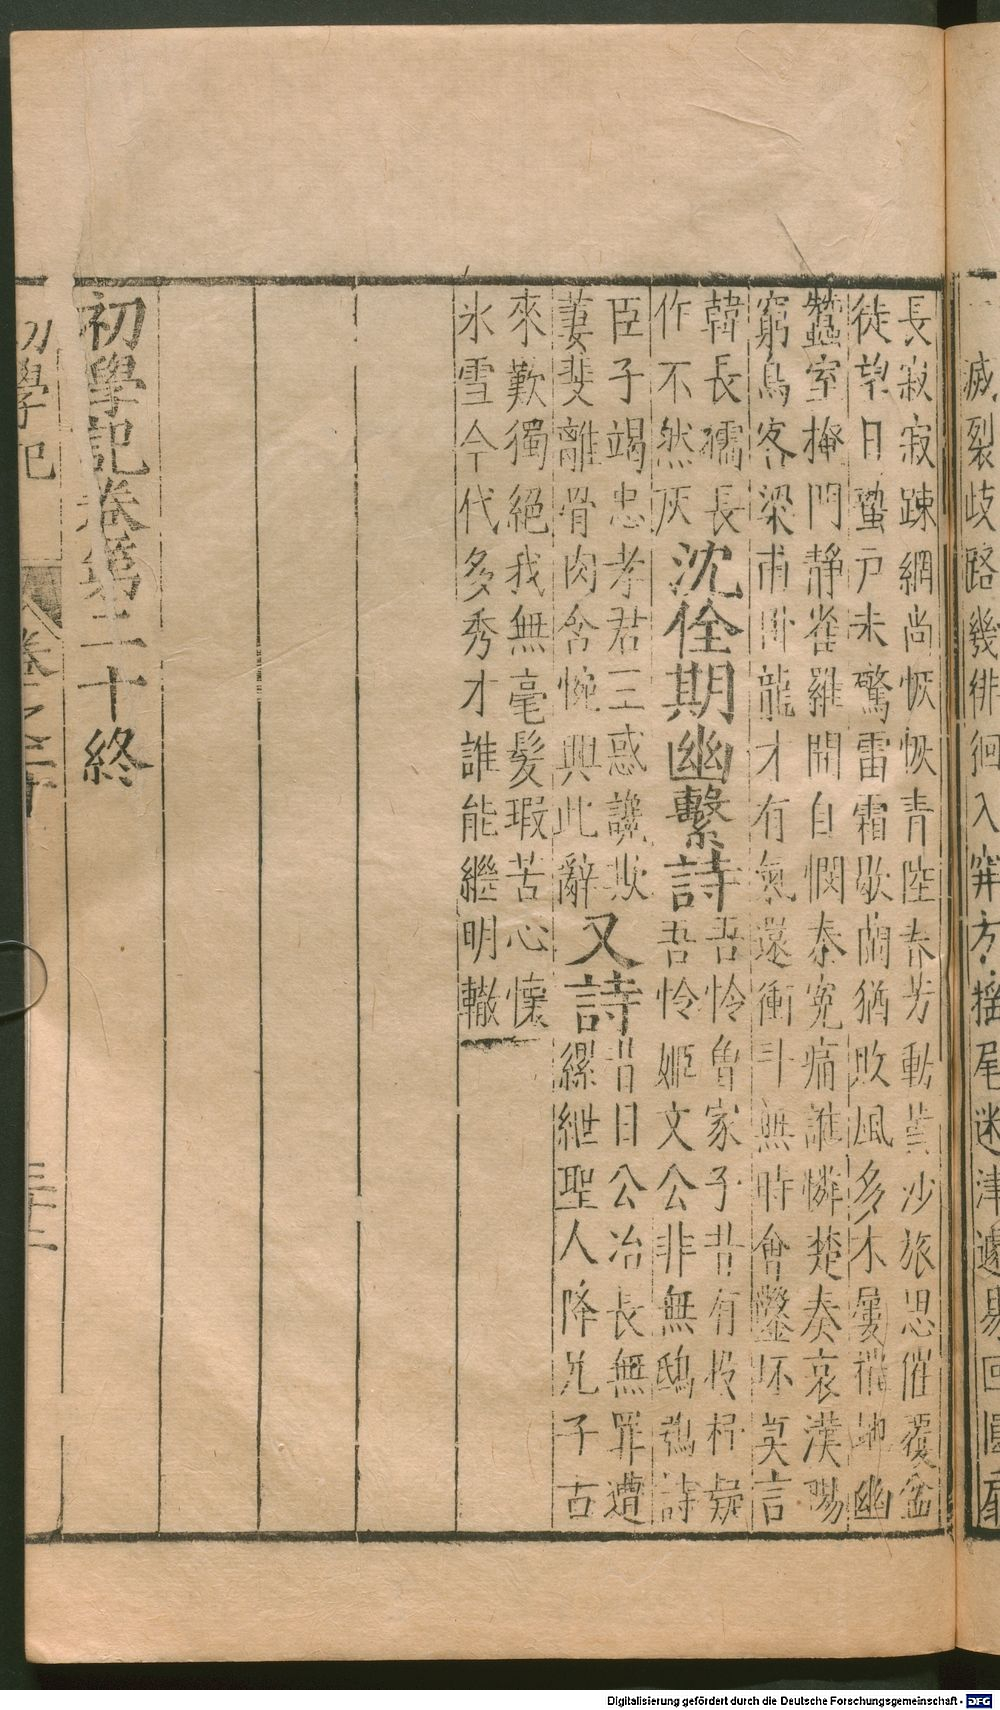 滅裂歧路幾徘徊入穽方搖尾迷津遽
長寂寂踈網尚恢恢青陸春芳動黃沙旅思催覆盆
徒望日蟄戸未驚雷霜歇蘭猶敗風多木屢摧地幽
蠶室掩門靜雀羅開自憫秦寃痛誰憐楚奏哀漢陽
窮鳥客梁甫卧龍才有氣還衝斗無時會鑿坏莫言
韓長孺長
作不然灰
沈佺期幽繫詩
吾怜魯家子昔有投杼疑
吾怜姬文公非無鴟鴞詩
臣子竭忠孝君王惑讒欺
萋斐離骨肉含悗興此辭
又詩
昔日公冶長無罪遭
縲紲聖人降兄子古
來歎獨絕我無毫髪瑕苦心懐
氷雪今代多秀才誰能繼明轍
初學記卷第二十終
初學記
卷之二十
三十二
Digitalisierung gefördert durch die Deutsche Forschungsgemeinschaft - DFG